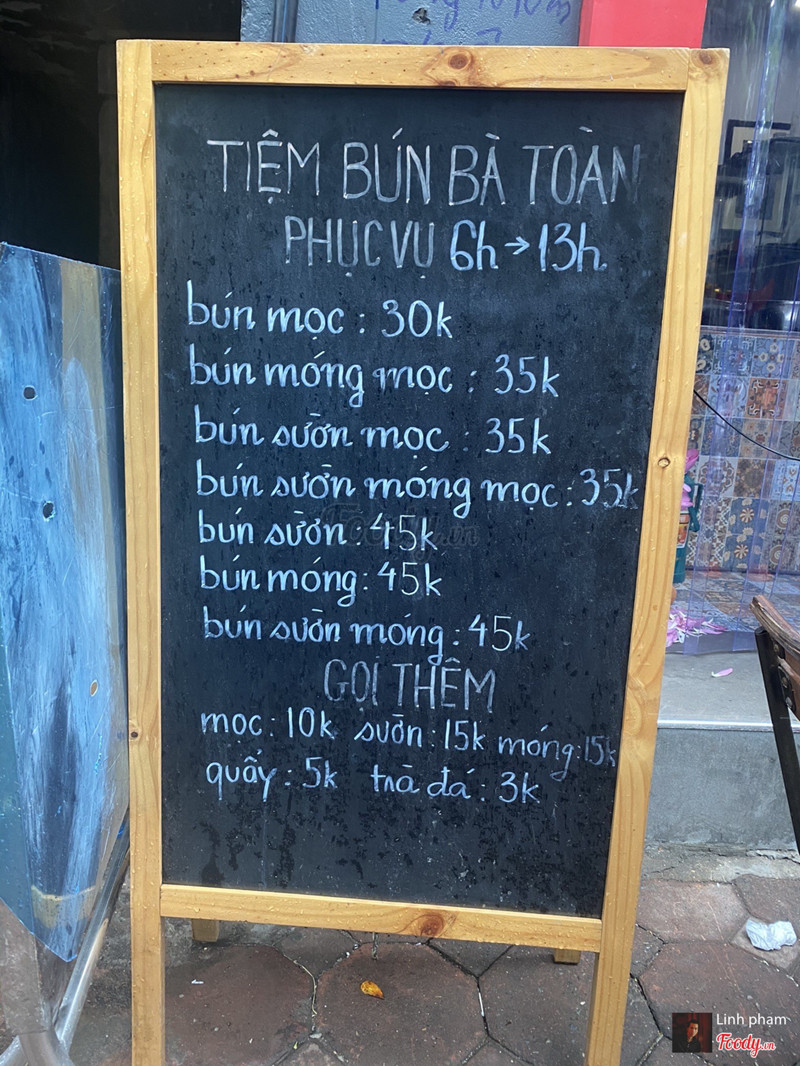 TIỆM BÚN BÀ TOÀN
PHỤC VỤ 6h → 13h
bún mọc : 30k
bún móng mọc : 35k
bún sườn mọc : 35k
bún sườn móng mọc : 35k
bún sườn : 45k
bún móng : 45k
bún sườn móng : 45k
GỌI THÊM
mọc : 10k sườn : 15k móng : 15k
quẩy : 5k trà đá : 3k
Foody.vn
Linh phạm
Foody.vn